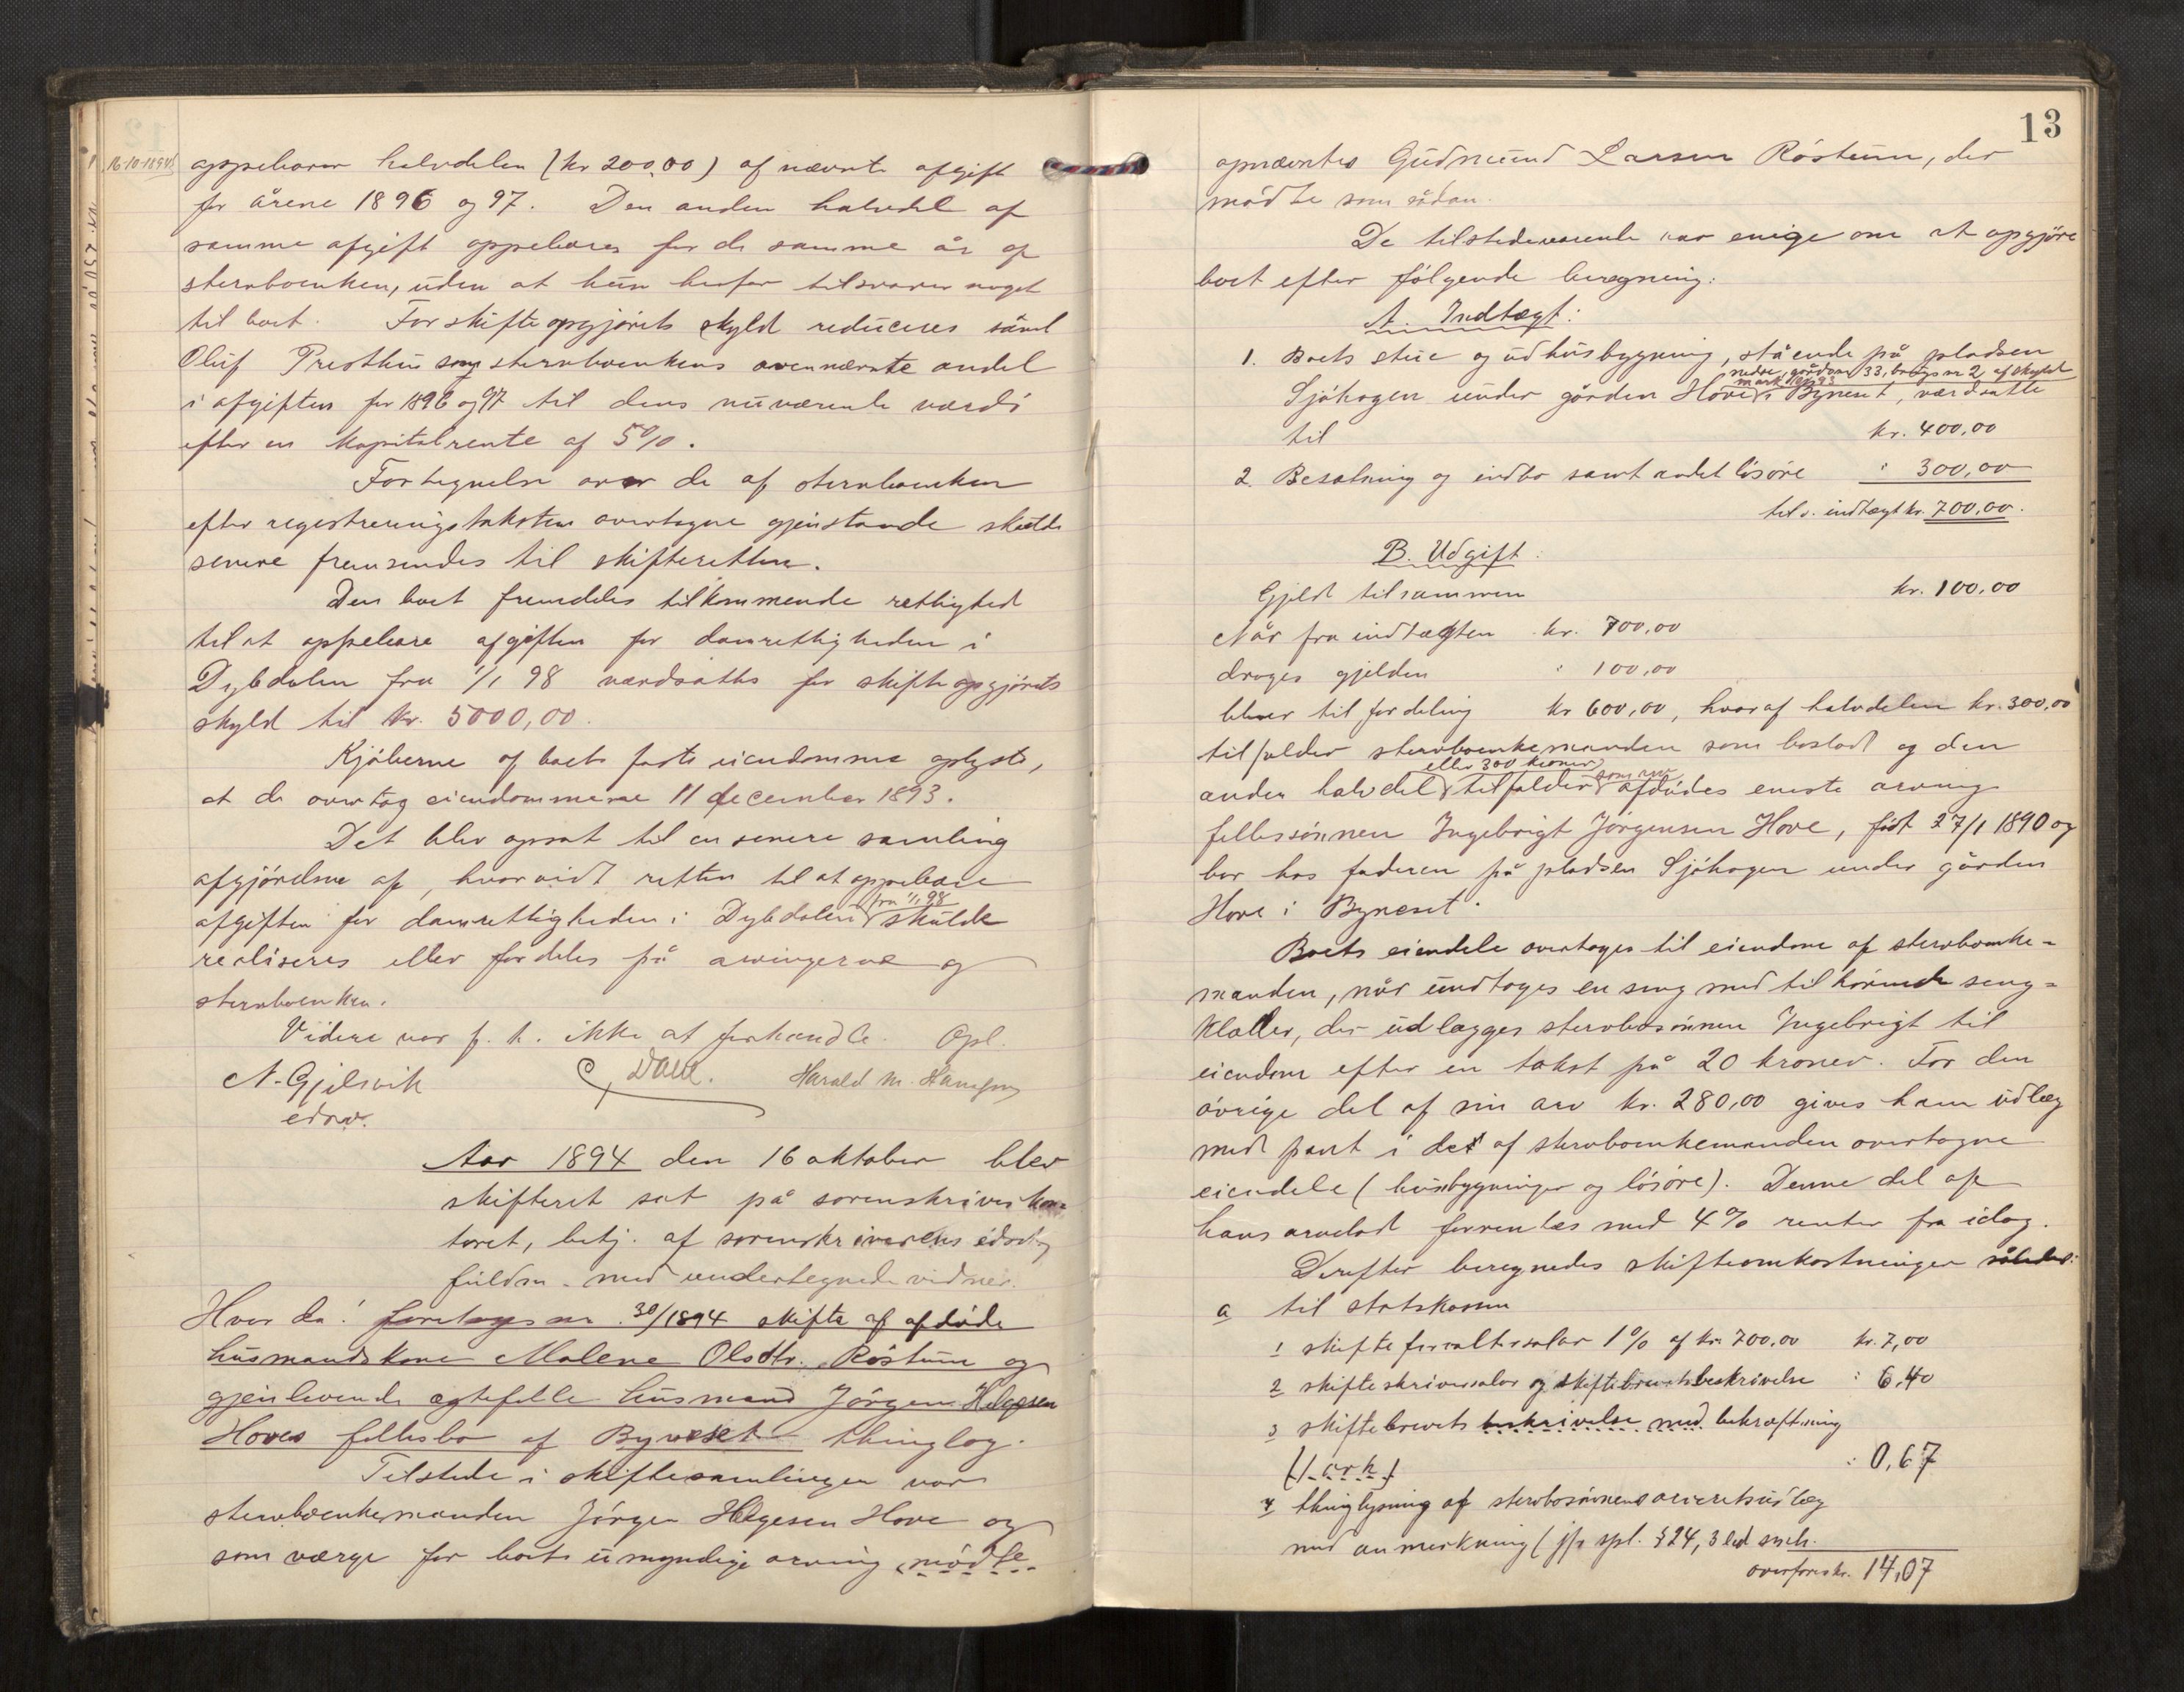 16-10-1894
oppebærer halvdelen (kr 200,00) af nævnte afgift
for årene 1896 og 97. Den anden halvdel af
samme afgift oppebæres for de samme år af
sterboenken, uden at hun herfor tilsvarer noget
til boet. For skifteopgjørets skyld reduceres såvel
Oluf Presthus som sterboenkens ovennævnte andel
i afgiften for 1896 og 97 til dens nuværende værdi
efter en kapitalrente af 5%.
Fortegnelse over de af sterboenken
efter registreringstaksten overtagne gjenstande skulde
senere fremsendes til skifteretten.
Den boet fremdeles tilkommende rettighed
til at oppebære afgiften for damrettigheden i
Dybdalen fra 1/1 98 værdsattes for skifteopgjørets
skyld til kr. 5000,00.
Kjøberne af boets faste eiendomme oplyste,
at de overtog eiendommene 11 december 1893.
Det blev opsat til en senere samling
afgjørelsen af, hvorvidt retten til at oppebære
afgiften for damrettigheden i Dybdalen fra 1/1 98 skulde
realiseres eller fordeles på arvingerne og
sterboenken.
Videre var p. t. ikke at forhandle. Opl.
N. Gjelsvik
edsv.
Harald M.
Aar 1894 den 16 oktober blev
skifteret sat på sorenskriverkon-
toret, betj. af sorenskriverens edsv.
fuldm. med undertegnede vidner.
Hvor da: foretoges nr. 30/1894 skifte af afdøde
husmandskone Malene Olsdtr. Røstum og
gjenlevende ægtefelle husmand Jørgen Helgesen
Hoves fellesbo af Bynesset thinglag.
Tilstede i skiftesamlingen var
sterboenkemanden Jørgen Helgesen Hove og
som værge for boets umyndige arving mødte
13
opnævntes Gudmund Larsen Røstum, der
mødte som sådan.
De tilstedeværende var enige om at opgjøre
boet efter følgende beregning:
A. Indtægt:
1. Boets stue og udhusbygning, stående på pladsen
Sjøhagen under gården Hove nedre, gårdsnr 33, brugsnr 2 af skyld mark i Byneset, værdsatte
til kr. 400,00
2. Besætning og indbo samt andet løsøre : 300,00
tils. indtægt kr. 700,00.
B. Udgift:
Gjeld tilsammen kr. 100,00
Når fra indtægten kr. 700,00
drages gjelden : 100,00
bliver til fordeling kr 600,00, hvoraf halvdelen kr. 300,00
tilfalder sterboenkemanden som boslod og den
anden halvdel eller 300 kroner tilfalder som arv afdødes eneste arving
fellessønnen Ingebrigt Jørgensen Hove, født 27/1 1890 og
bor hos faderen på pladsen Sjøhagen under gården
Hove i Byneset.
Boets eiendele overtages til eiendom af sterboenke-
manden, når undtages en seng med tilhørende seng-
klæder, der udlægges sterbosønnen Ingebrigt til
eiendom efter en takst på 20 kroner. For den
øvrige del af sin arv kr. 280,00 gives ham udlæg
med pant i de af sterboenkemanden overtagne
eiendele (husbygninger og løsøre). Denne del af
hans arvelod forrentes med 4% renter fra idag.
Derefter beregnedes skifteomkostningen således:
a til statskassen
1 skifteforvaltersalær 1% af kr. 700,00 kr. 7,00
2 skifteskriversalær og skiftebrevets beskrivelse : 6,40
3 skiftebrevets beskrivelse med bekræftning
(1 ark) : 0,67
4 thinglysning af sterbosønnens arveretsudlæg
med anmerkning (jfr spl. §24, 3 led
overføres kr. 14,07